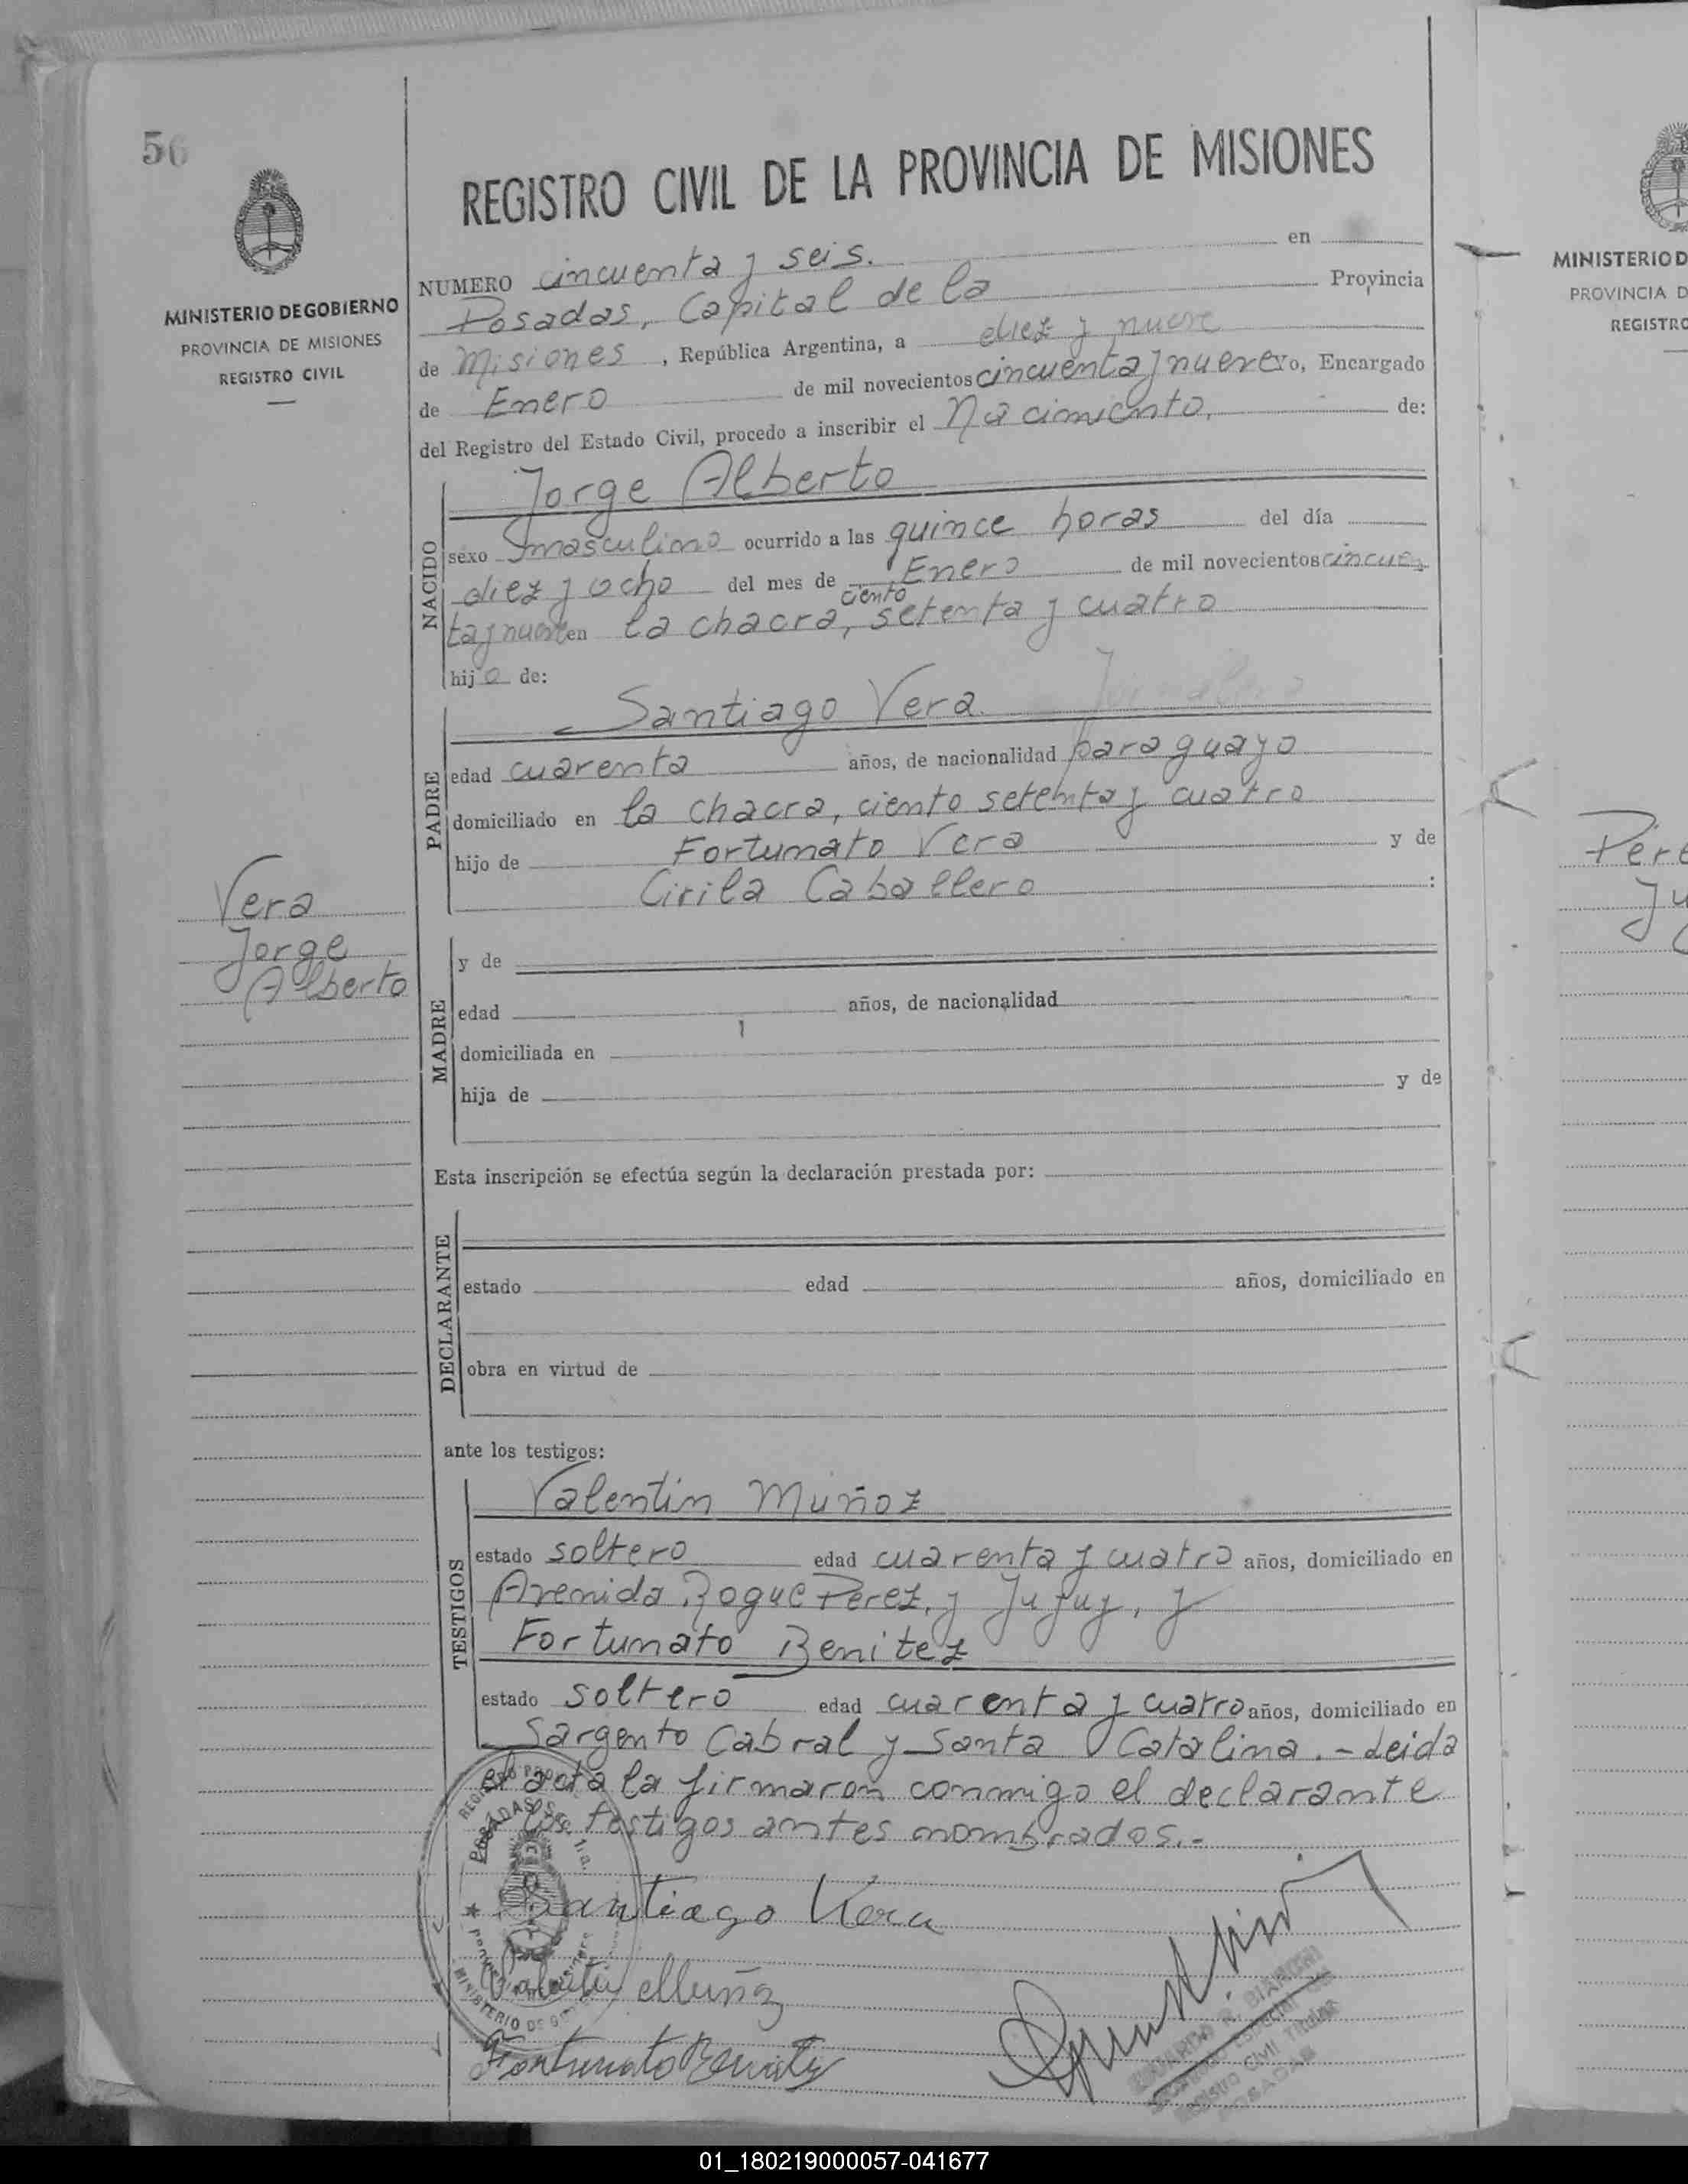 56
MINISTERIO DE GOBIERNO
PROVINCIA DE MISIONES
REGISTRO CIVIL
REGISTRO CIVIL DE LA PROVINCIA DE MISIONES
NUMERO cincuenta y seis. en
Posadas, Capital de la Provincia
de Misiones, República Argentina, a diez y nueve
de Enero de mil novecientos cincuenta y nueve yo, Encargado
del Registro del Estado Civil, procedo a inscribir el Nacimiento, de:
NACIDO
Jorge Alberto
sexo masculino ocurrido a las quince horas del día
diez y ocho del mes de Enero de mil novecientos cincuen
ta y nueve en la chacra, ciento setenta y cuatro
hijo de:
PADRE
Santiago Vera Jornalero
edad cuarenta años, de nacionalidad paraguayo
domiciliado en la chacra, ciento setenta y cuatro
hijo de Fortunato Vera y de
Cirila Caballero :
Vera
Jorge
Alberto
MADRE
y de
edad años, de nacionalidad
domiciliada en
hija de y de
Esta inscripción se efectúa según la declaración prestada por:
DECLARANTE
estado edad años, domiciliado en
obra en virtud de
ante los testigos:
TESTIGOS
Valentin Muñoz
estado soltero edad cuarenta y cuatro años, domiciliado en
Avenida Roque Perez, y Jujuy, y
Fortunato Benitez
estado soltero edad cuarenta y cuatro años, domiciliado en
Sargento Cabral y Santa Catalina. - Leida
el acta la firmaron conmigo el declarante
y los testigos antes nombrados.-
Santiago Vera
Valentin Muñoz
Fortunato Benitez
POSADAS
MINISTERIO DE
Registro Civil Titular
POSADAS
MINISTERIO D
PROVINCIA D
REGISTRO
Pere
Ju
01_180219000057-041677